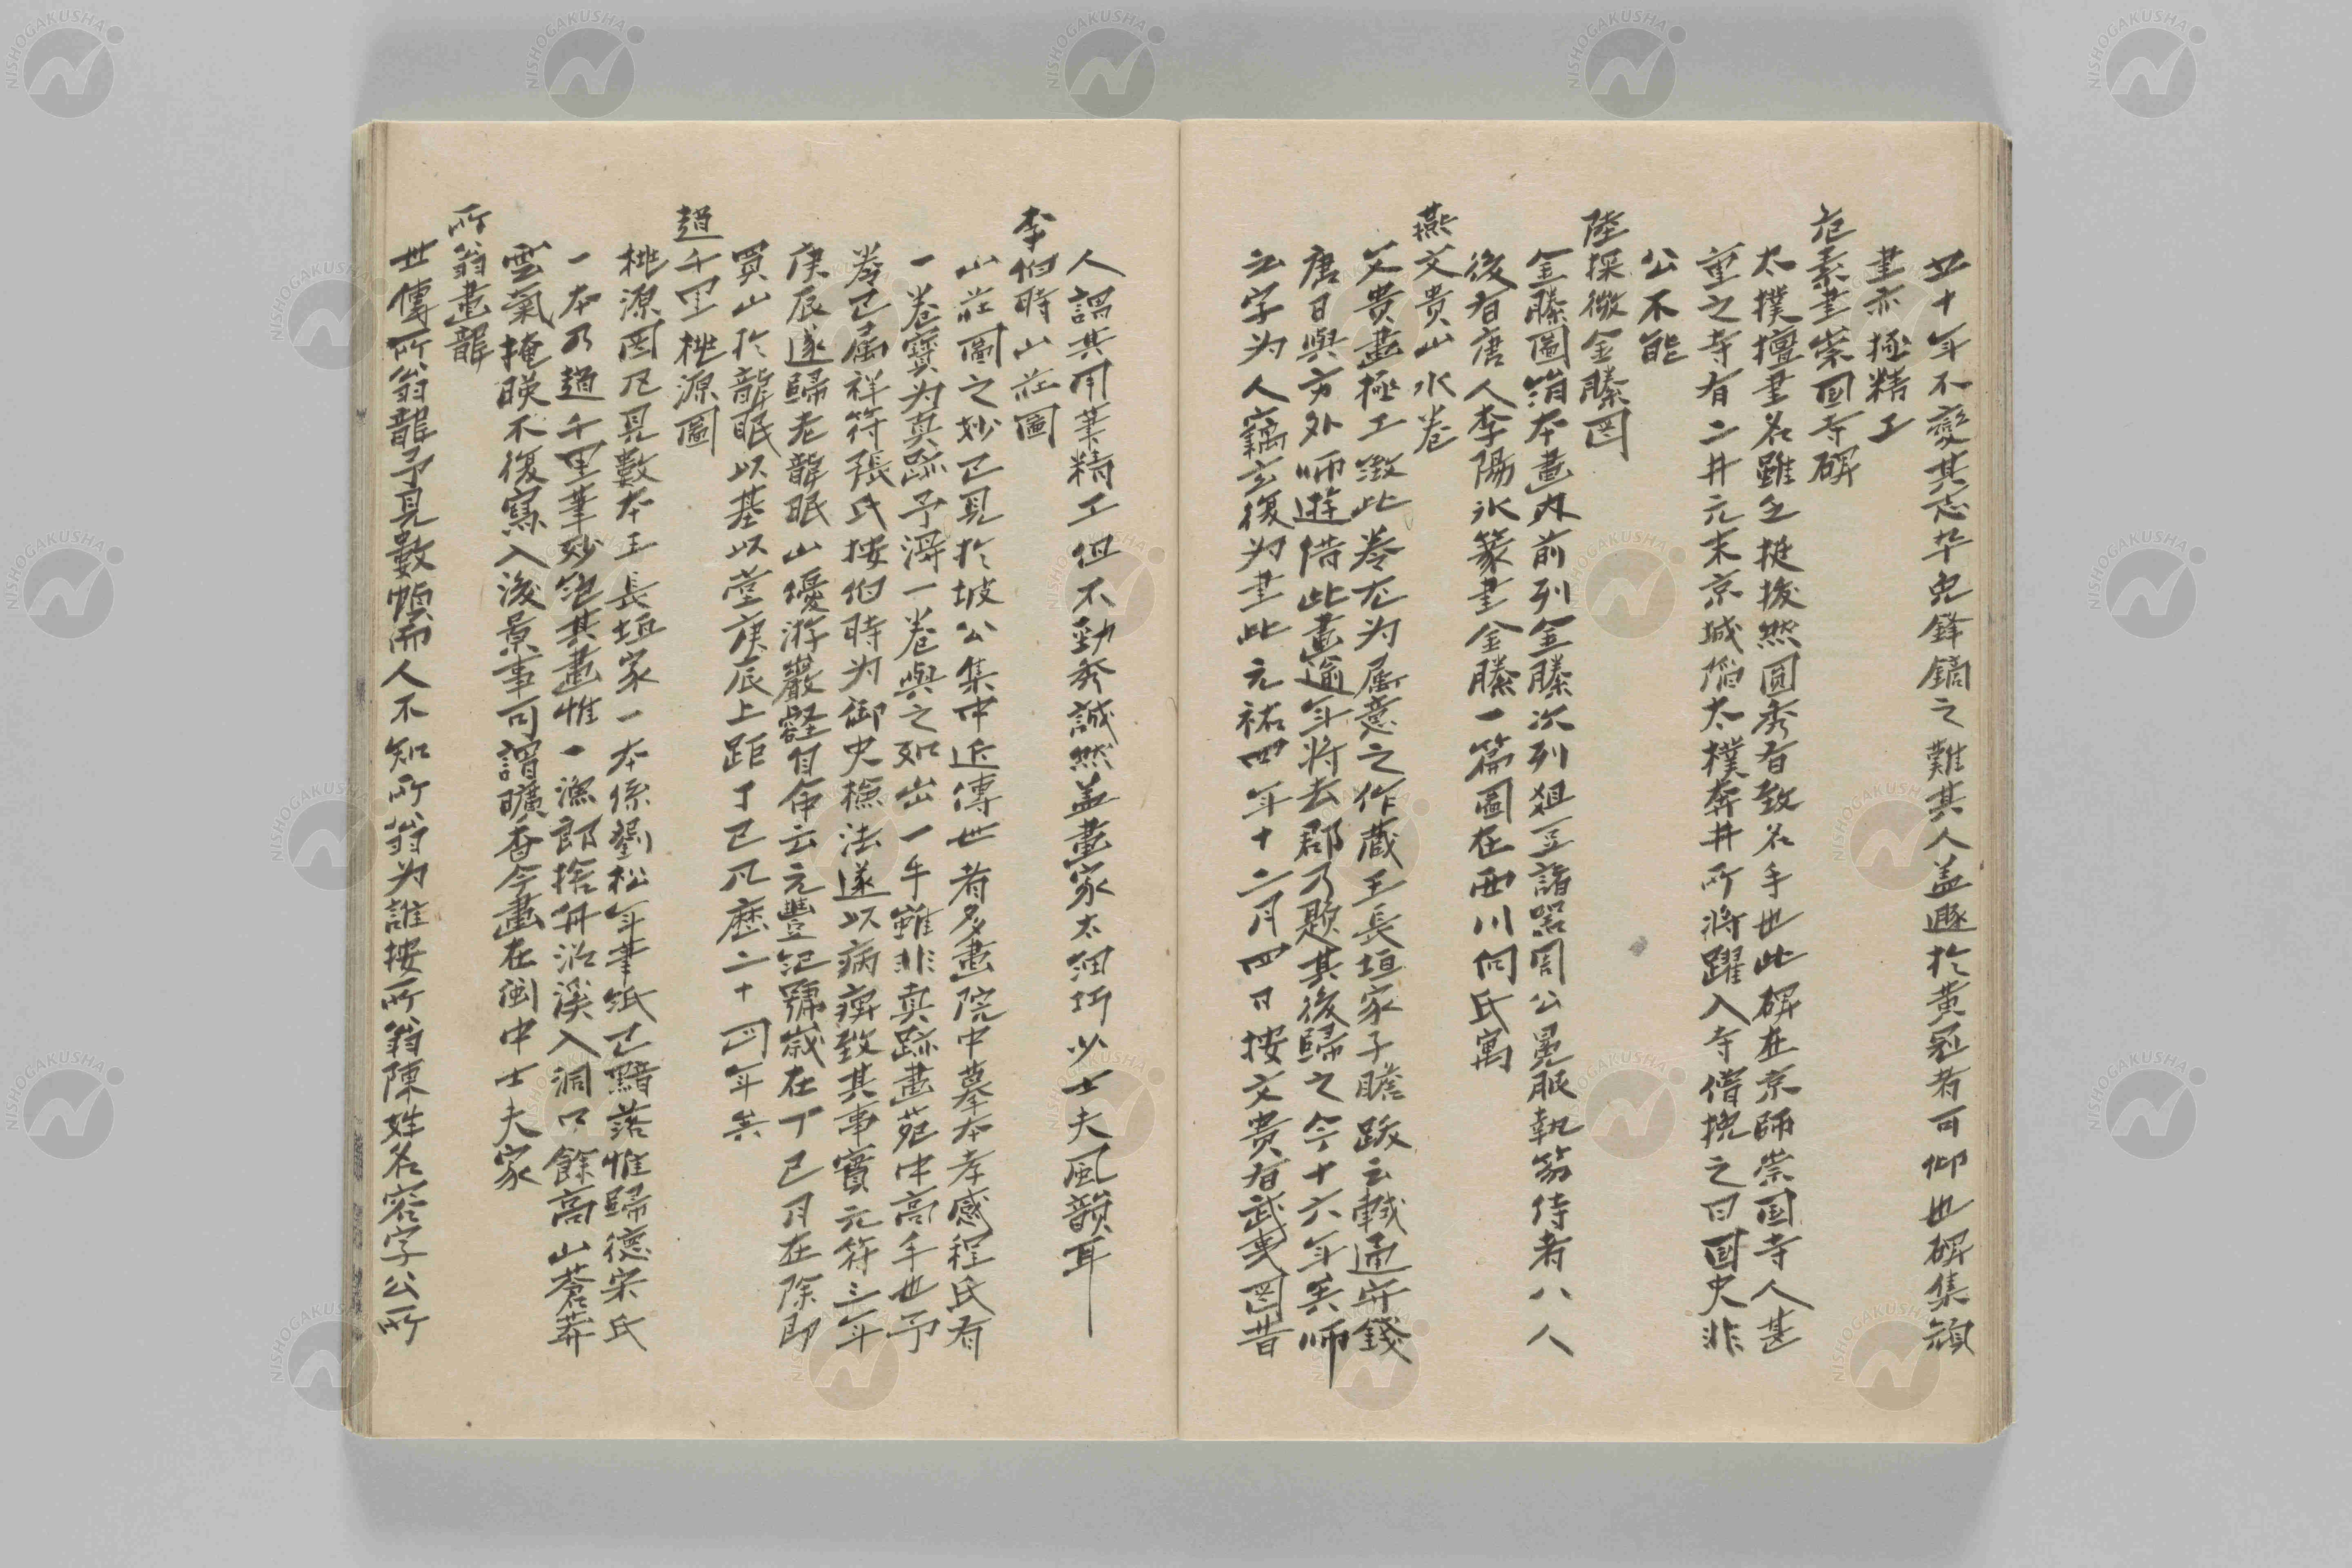 廿十年不變其志卒免鋒鏑之難其人盖遯扵黄冠者可仰也碑集顔
書亦極精工
危素書崇国寺碑
太撲擅書名雖乏挺拔然圓秀有致名手也此碑在京師崇国寺人甚
重之寺有二井元末京城陷太樸奔井所將躍入寺僧挽之曰国史非
公不能
陸探微金縢図
金縢圖絹本畫内前列金縢次列俎豆諸器周公冕服執笏侍者八人
後有唐人李陽氷篆書金縢一篇圖在西川何氏寓
燕文貴山水卷
文貴畫極工緻此卷尤为属意之作蔵王長垣家子瞻跋云軾通守錢
唐日與方外師遊借此畫逾年将去郡乃題其後歸之今十六年矣師
立字为人竊去復为書此元祐四年十二月四日按文貴有武夷図昔
人謂其用筆精工但不勁秀誠然盖畫家太細巧少士夫風韻耳
李伯時山荘圖
山荘圖之妙已見扵坡公集中近傳世者多畫院中摹本孝感程氏有
一卷寶为真跡予淂一卷與之如出一手雖非真跡畫苑中高手也予
卷已属祥符張氏按伯時为御史檢法遂以病痹致其事實元符三年
庚辰遂歸老龍眠山優游巖壑自命云元豐記號歳在丁巳月在除即
買山扵龍眠以基以堂庚辰上距丁巳凡歴二十四年矣
趙千里桃源圖
桃源図凡見數本王長垣家一本係劉松年筆紙已黯落惟歸德宋氏
一本乃趙千里筆妙絶其畫惟一漁郎捨舟沿溪入洞口餘高山蒼莽
雲氣掩映不復寫入後景事可謂曠香今畫在閩中士夫家
所翁畫龍
世傳所翁龍予見數幀而人不知所翁为誰按所翁陳姓名容字公所